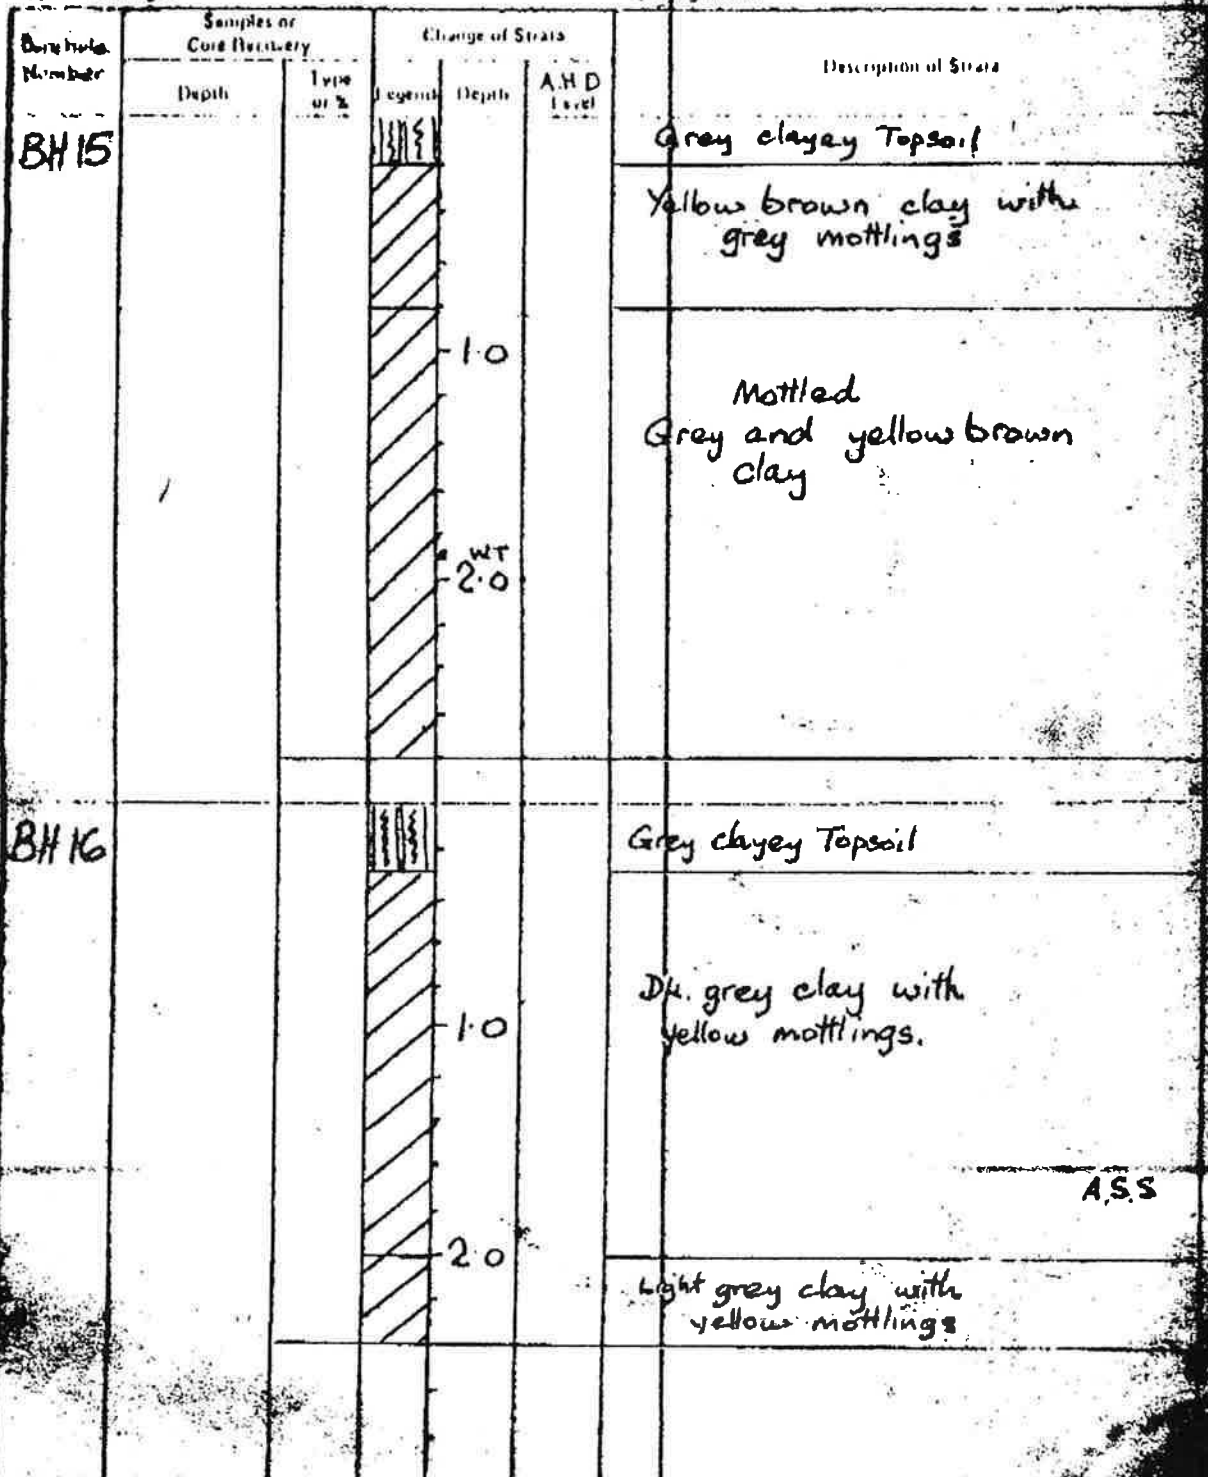 Borehole
Number
Samples or
Core Recovery
Depth
Type
or %
Change of Strata
Legend
Depth
A.H.D
Level
Description of Strata
BH 15
Grey clayey Topsoil
Yellow brown clay with
grey mottlings
1.0
Mottled
Grey and yellow brown
clay
WT
2.0
BH 16
Grey clayey Topsoil
Dk. grey clay with
yellow mottlings.
1.0
A.S.S
2.0
Light grey clay with
yellow mottlings